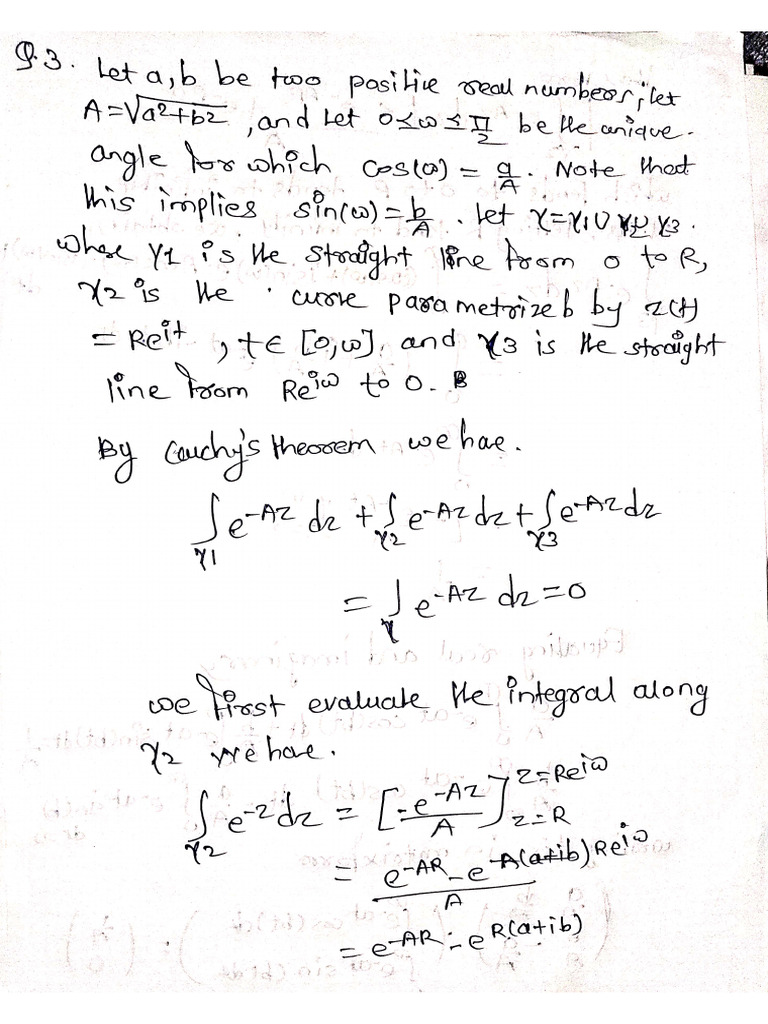 Q.3. Let a,b be two positive real numbers, let
A=√a²+b² , and let 0≤ω≤π/2 be the unique.
angle for which cos(ω) = a/A. Note that
this implies sin(ω)=b/A. let γ=γ1∪γ2∪γ3.
where γ1 is the straight line from 0 to R,
γ2 is the curve parametrizeb by z(t)
= Re^it , t∈ [0,ω], and γ3 is the straight
line from Re^iω to 0.
By Cauchy's theorem we hae.
∫γ1 e^-Az dz + ∫γ2 e^-Az dz + ∫γ3 e^-Az dz
= ∫γ e^-Az dz = 0
we first evaluate the integral along
γ2 we have.
∫γ2 e^-z dz = [-e^-Az/A] z=R z=Re^iω
= e^-AR - e^-A(a+ib) Re^iω / A
= e^-AR - e^R(a+ib)